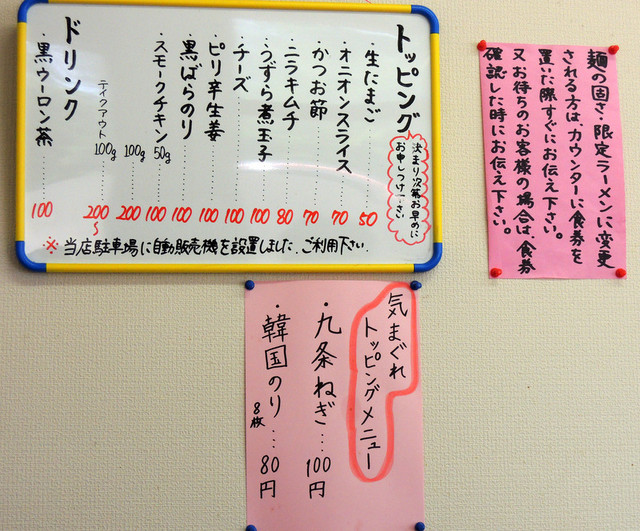 トッピング
決まり次第お早めに
お申しつけ下さい
・生たまご……50
・オニオンスライス……70
・かつお節……70
・ニラキムチ……80
・うずら煮玉子……100
・チーズ……100
・ピリ辛生姜……100
・黒ばらのり……100
・スモークチキン 50g……100
100g……200
テイクアウト 100g……200〜
ドリンク
・黒ウーロン茶……100
※当店駐車場に自動販売機を設置しました。ご利用下さい。
麺の固さ・限定ラーメンに変更
される方は、カウンターに食券を
置いた際すぐにお伝え下さい。
又お待ちのお客様の場合は、食券
確認した時にお伝え下さい。
気まぐれ
トッピングメニュー
・九条ねぎ…100円
・韓国のり…80円
8枚